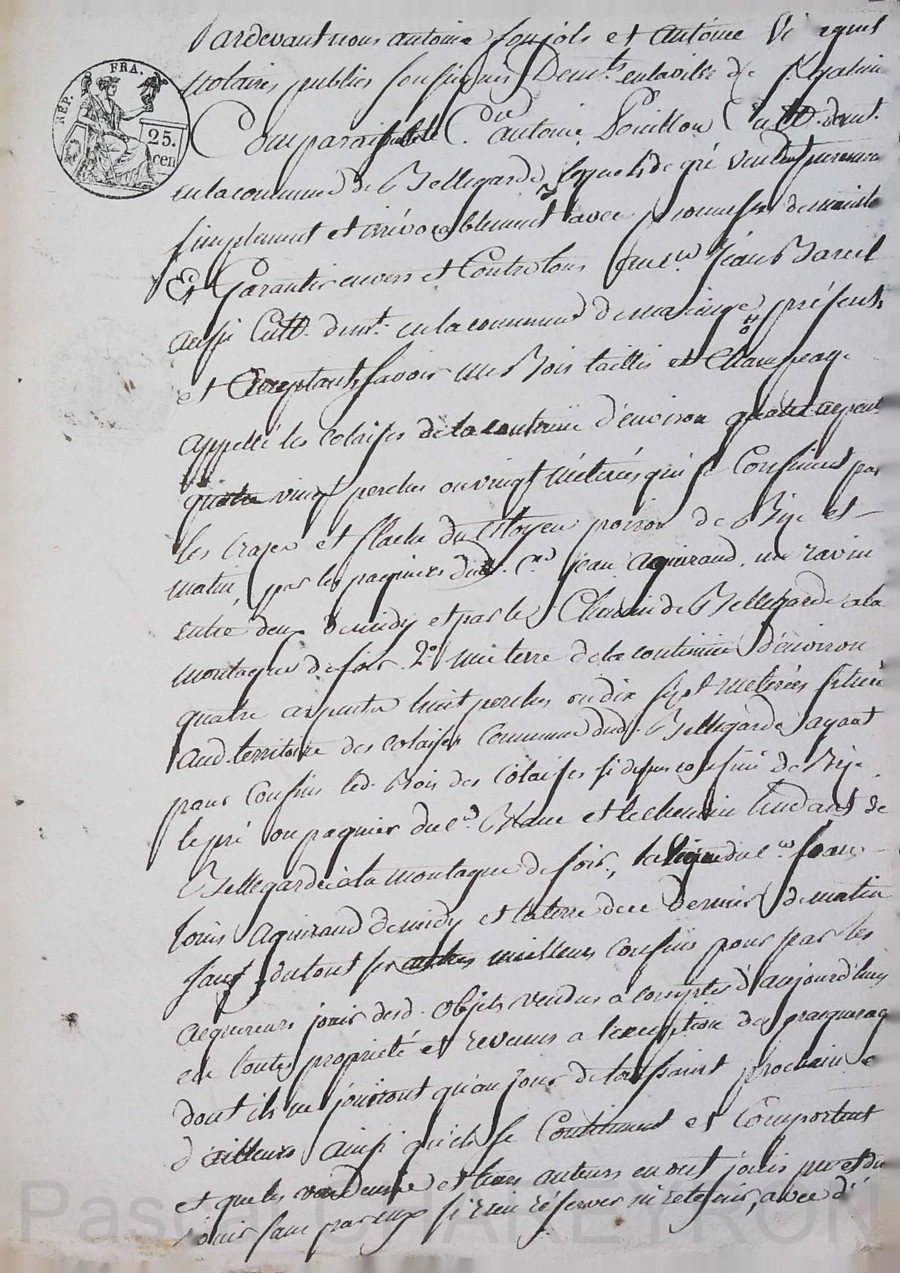 RÉP. FRA.
25. cen
Pardevant nous antoine soujols et antoine
notaires publics soussignés Demts. en la ville de st. galmier
Comparaissent Cen. antoine Pouillon Cultt. demt.
en la commune de Bellegarde lequel de gré vendent purement
simplement et irrévocablement avec promesses de maintenir
Et Garantir envers et Contre tous Jean Bareil
aussi Cultt. demt. en la commune de maringes présents
et acceptants savoir un Bois taillis et Champeage
appellé les colaises de la contenue d'environ quatre arpents
quatre vingt perches ou vingt méterées qui se Confinent par
les et du Citoyen poiron de Bize et
matin, par les paquiers dud. Cen. jean aquirand, un ravin
entre deux de midy et par le Chemin de Bellegarde a la
montagne de soir. 2°. une terre de la contenue d'environ
quatre arpents huit perches ou dix sept méterées située
aud. territoire des colaises Commune dud. Bellegarde ayant
pour confins led. Bois des Colaises si dessus confiné de Bize,
le pré ou paquier du Cen. Blanc et le chemin tendant de
Bellegarde a la montagne de soir, du Cen. franc-
louis aquirand de midy et la terre de ce dernier de matin
sauf du tout ses autres meilleurs confins pour par les
acquereurs jouir desd. objets vendus a compter d'aujourd'huy
en toutes propriété et revenus a l'exception des
dont ils ne jouiront qu'au jour de toussaint prochain
d'ailleurs ainsi qu'ils se Contiennent et Comportent
et que les vendeurs et leurs auteurs en ont jouis pu et du
jouir sans par eux si rien réserver ni retenir, avec d'é
Pascal CHAREYRON